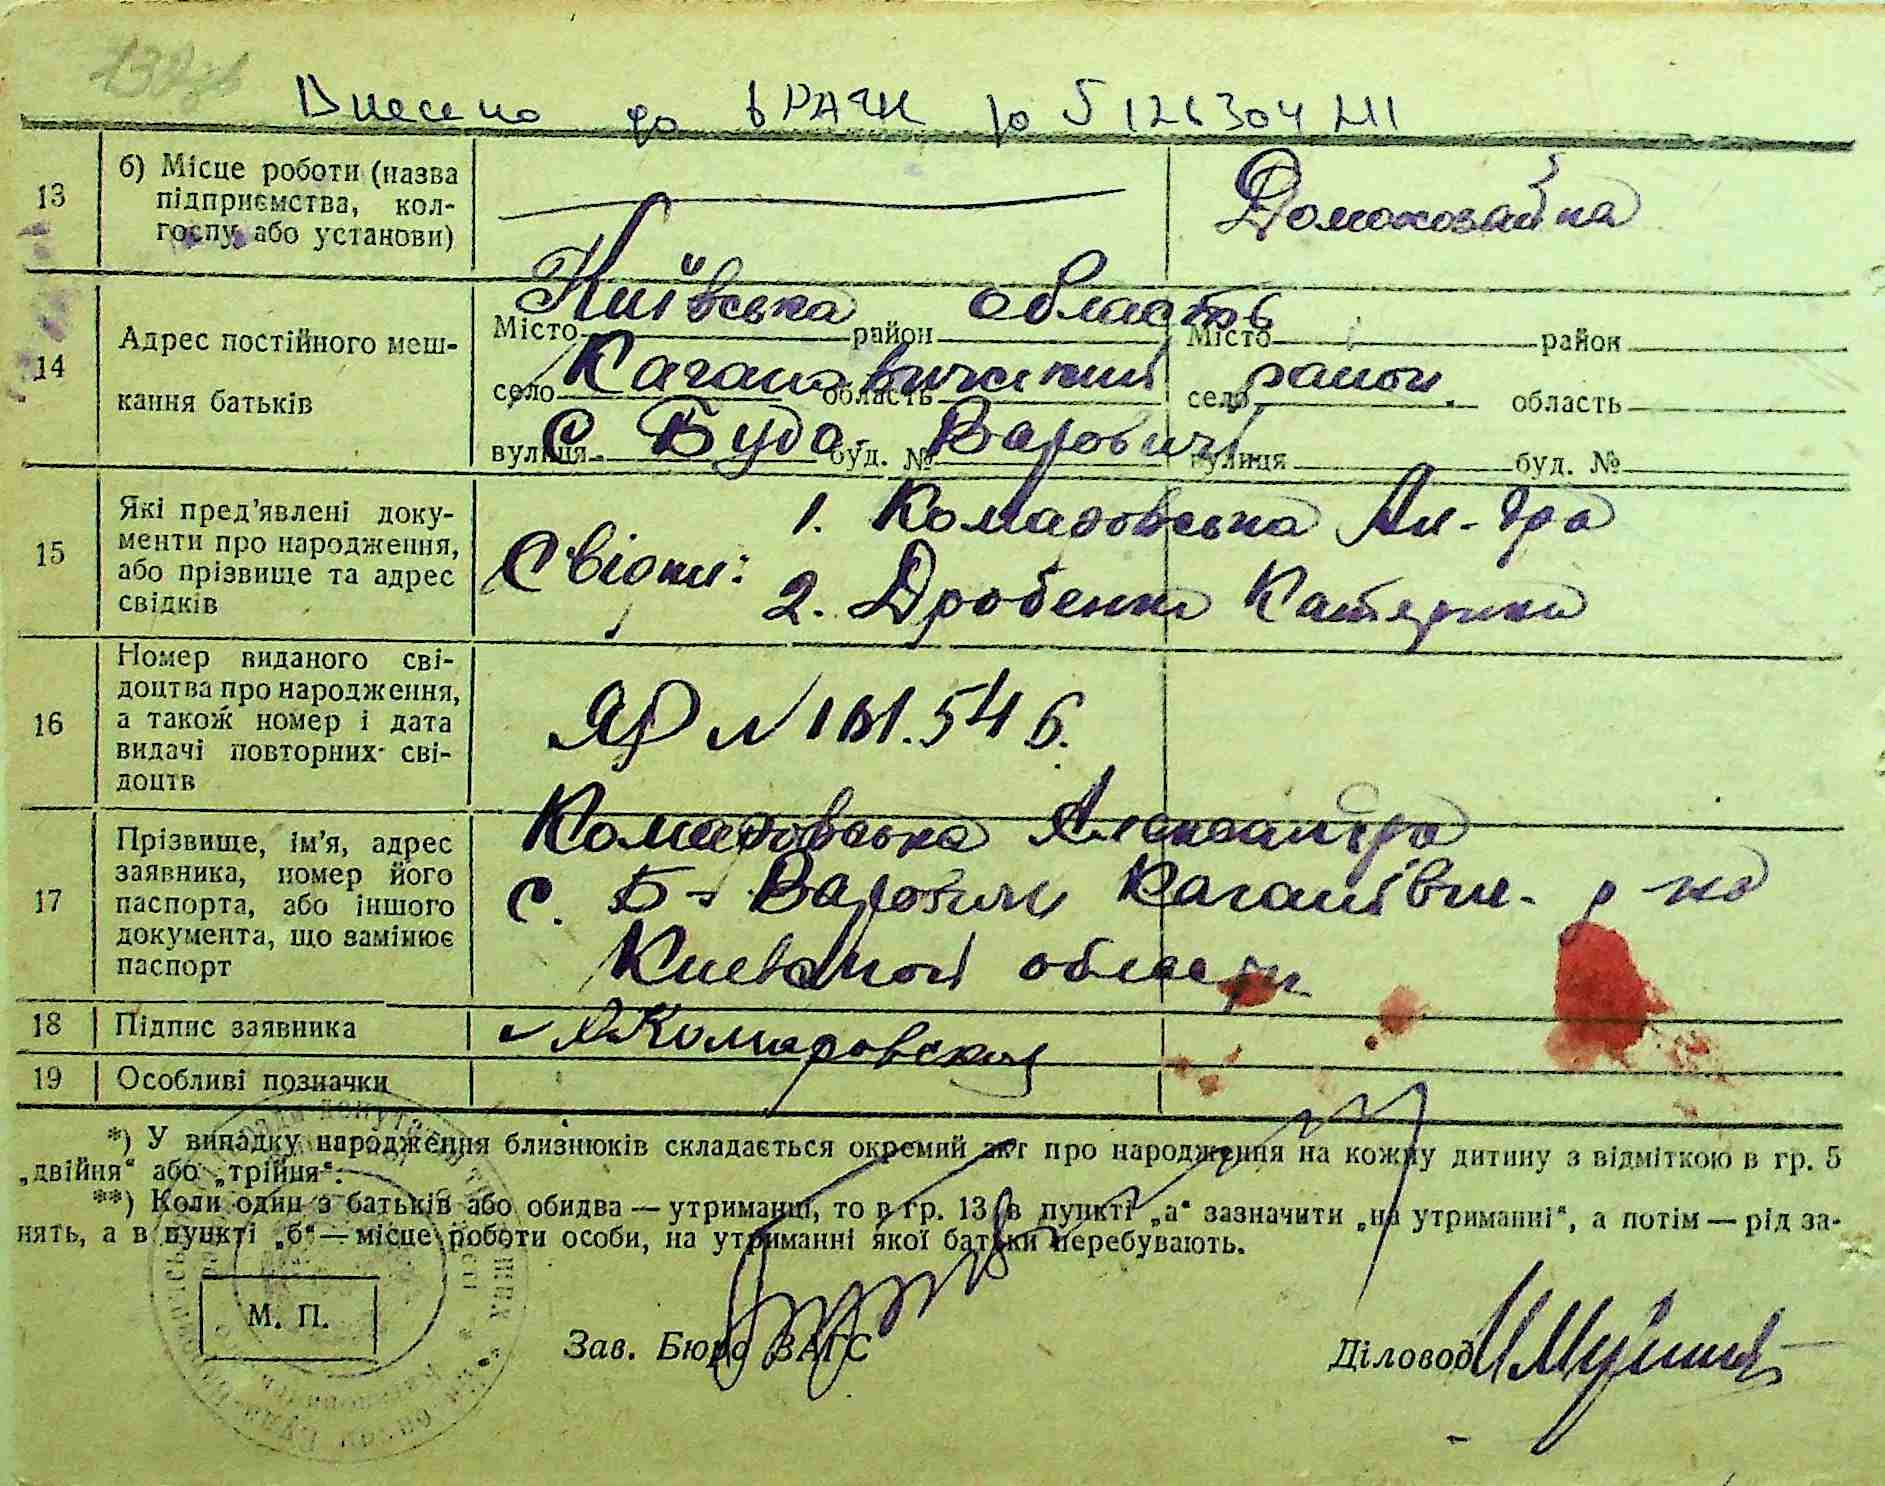 Внесено до
13
б) Місце роботи (назва
підприємства, кол-
госпу або установи)
Домохозяйка
14
Адрес постійного меш-
кання батьків
Київська область
Місто район Місто район
Кагановичский район
село область село область
с. Буда-Варовичі
вулиця буд. № вулиця буд. №
15
Які пред'явлені доку-
менти про народження,
або прізвище та адрес
свідків
Свідки:
1. Комаровська Ал-дра
2. Дробенко Катерина
16
Номер виданого сві-
доцтва про народження,
а також номер і дата
видачі повторних сві-
доцтв
ЯР №
17
Прізвище, ім'я, адрес
заявника, номер його
паспорта, або іншого
документа, що замінює
паспорт
Комаровська Александра
с. Б-Варовичи р-на
Киевской области
18
Підпис заявника
Комаровская
19
Особливі позначки
*) У випадку народження близнюків складається окремий акт про народження на кожну дитину з відміткою в гр. 5
„двійня“ або „трійня“.
**) Коли один з батьків або обидва — утриманці, то в гр. 13 в пункті „а“ зазначити „на утриманні“, а потім — рід за-
нять, а в пункті „б“ — місце роботи особи, на утриманні якої батьки перебувають.
М. П.
Зав. Бюро ЗАГС
Діловод